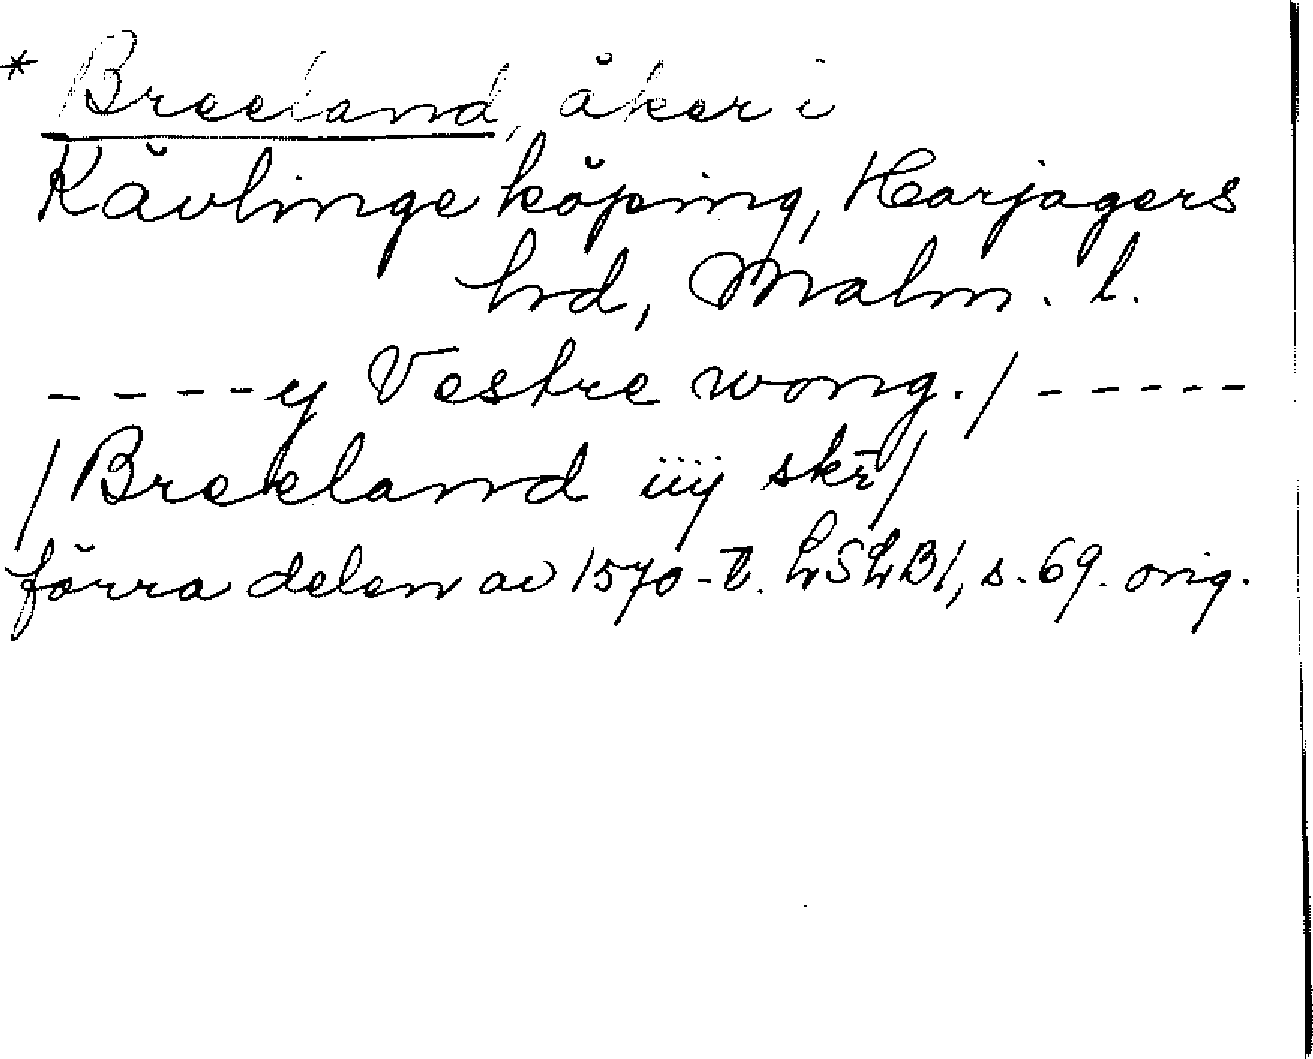 * Breeland, åker i
Kävlinge köping, Harjagers
hrd, Malm. l.
- - - - y Vestre wong. / - - - - -
/ Breeland iiij skr̄ /
förra delen av 1570-t. LSLB1, s. 69. orig.